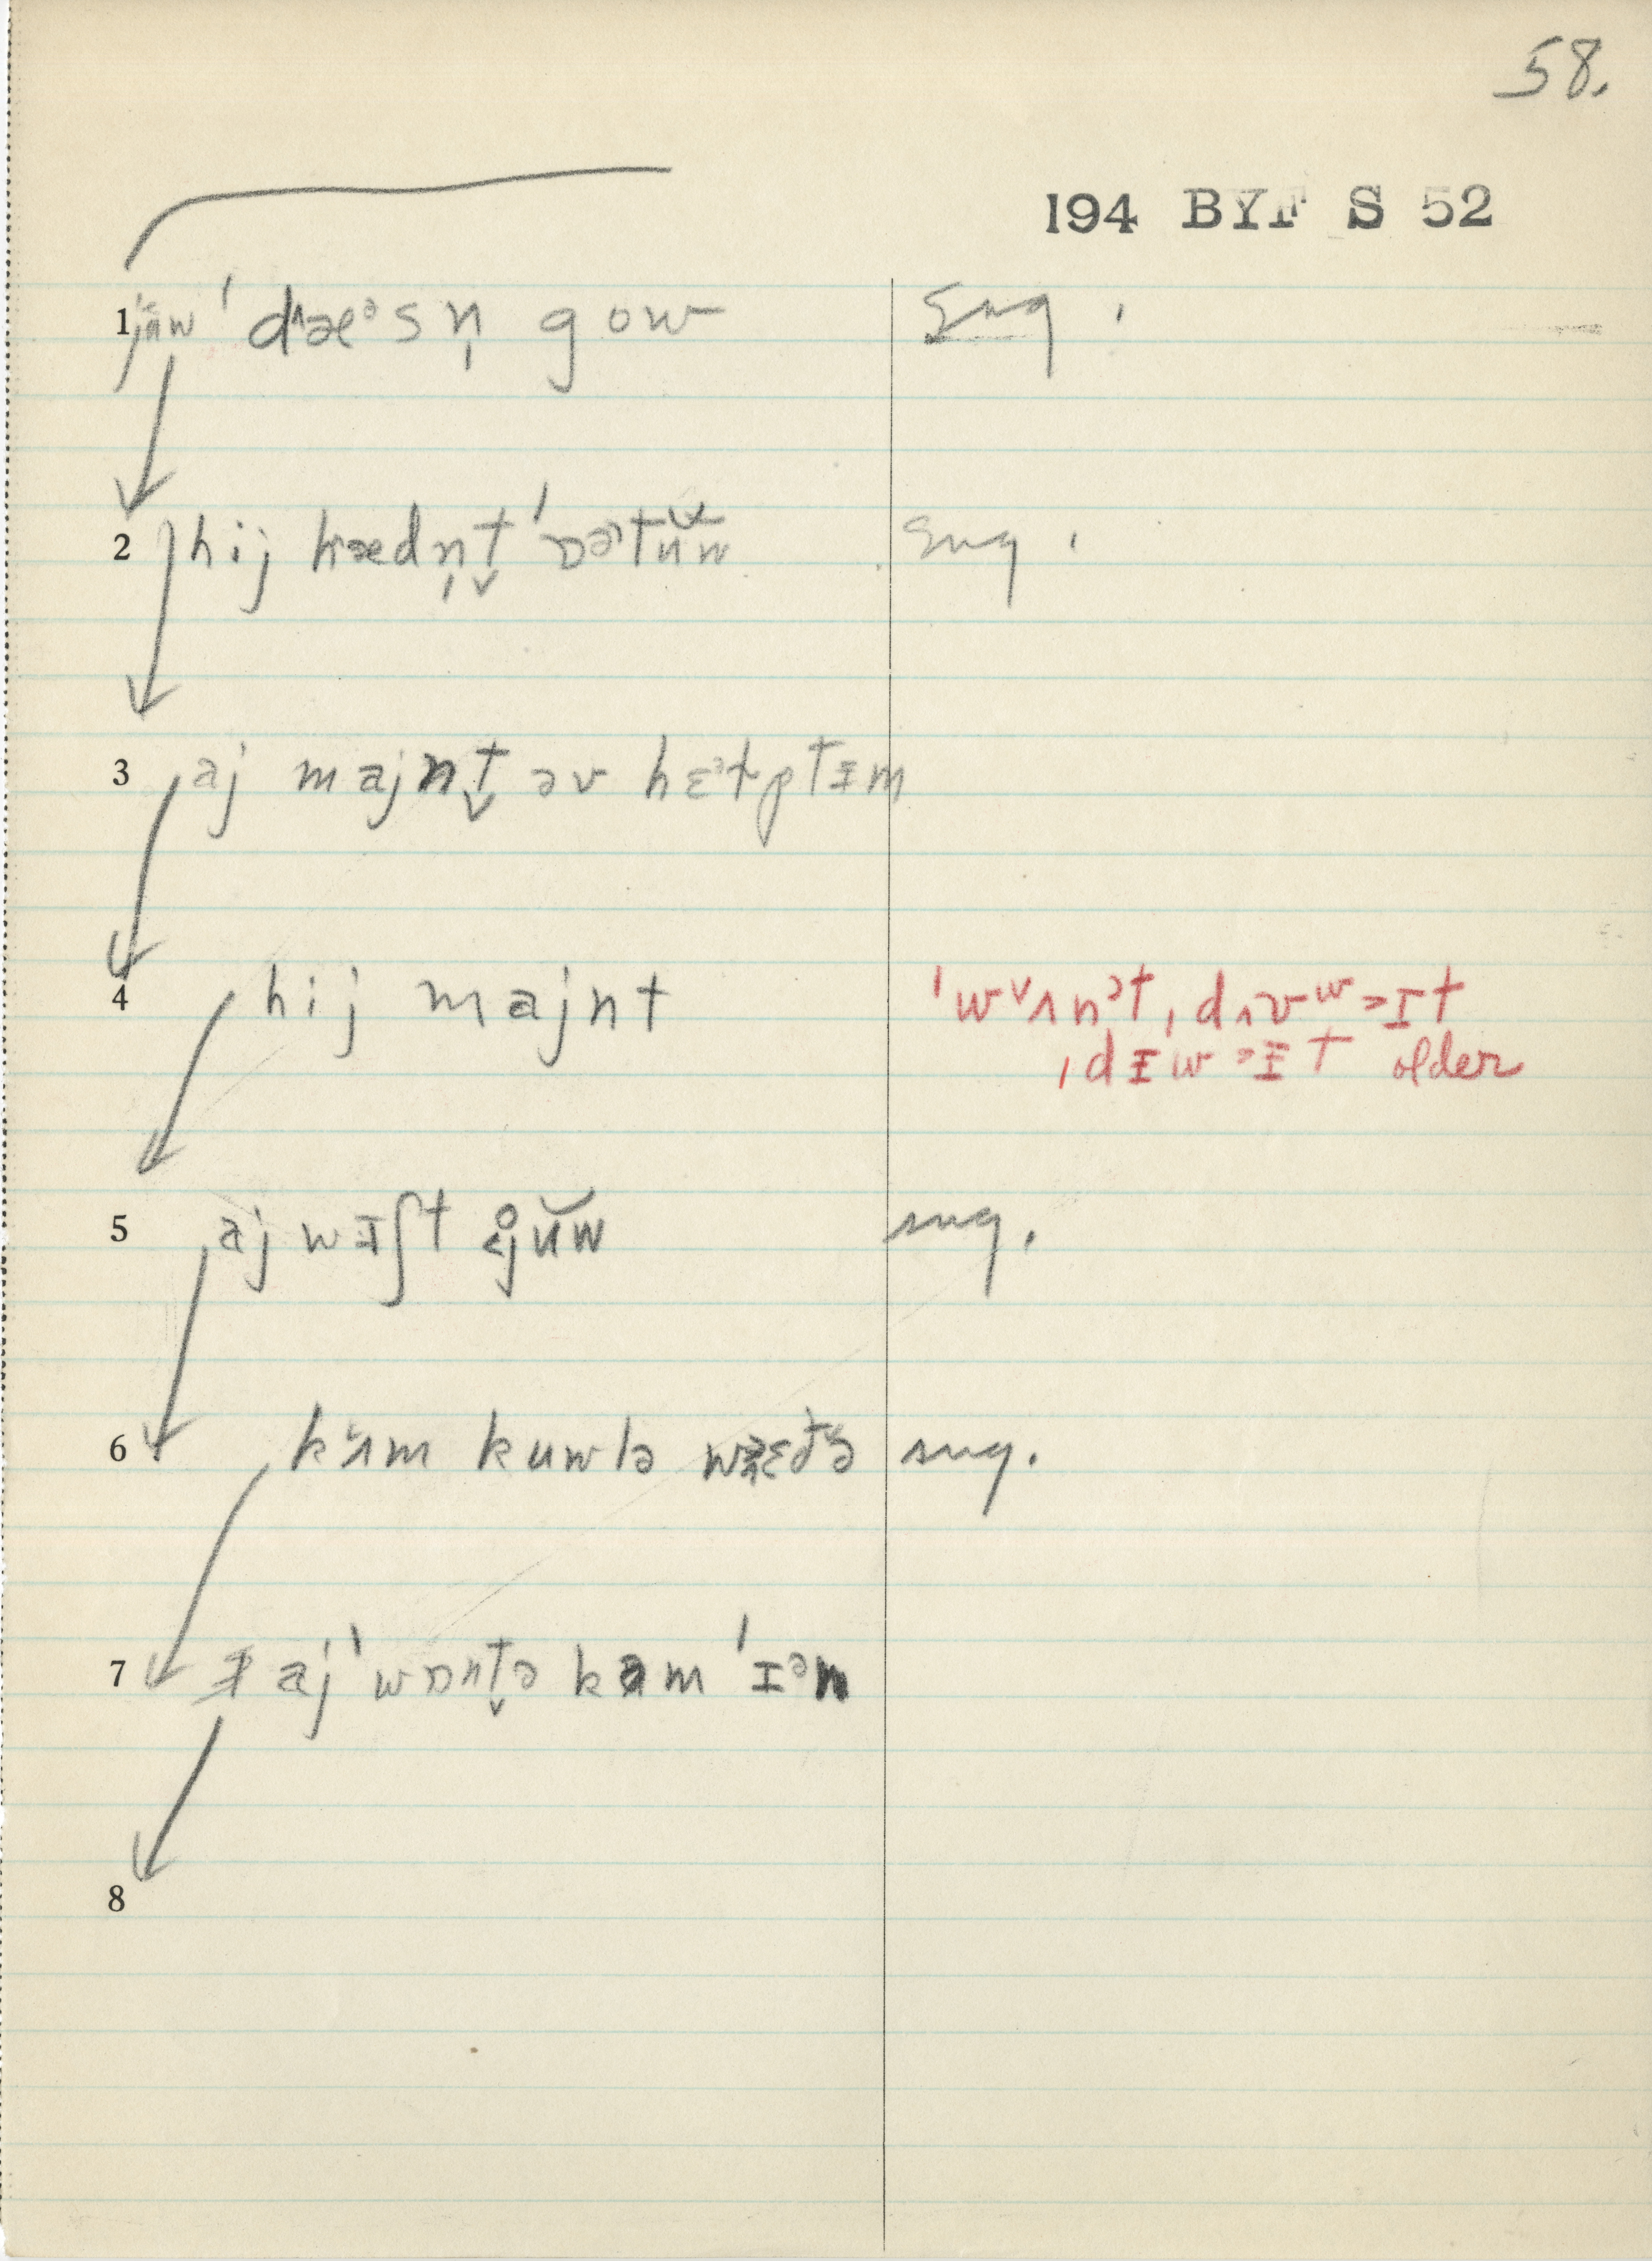 58.
194 BYF S 52
1 jüw ˈdᴧæᵊsn̩ gow sug.
2 hij hædn̩t̬ ˈɒətŭw sug.
3 aj majnt̬ əv hɛᵊɫptɨm
4 hij majnt ˈwᵛʌnᵊt, dʌvʷɪt
ˌdɨwɨt older
5 aj wɪʃt j̊ŭw sug.
6 kʌm kuwlə sug.
7 aj ˈwɒnt̬ə kəm ˈɪᵊn
8